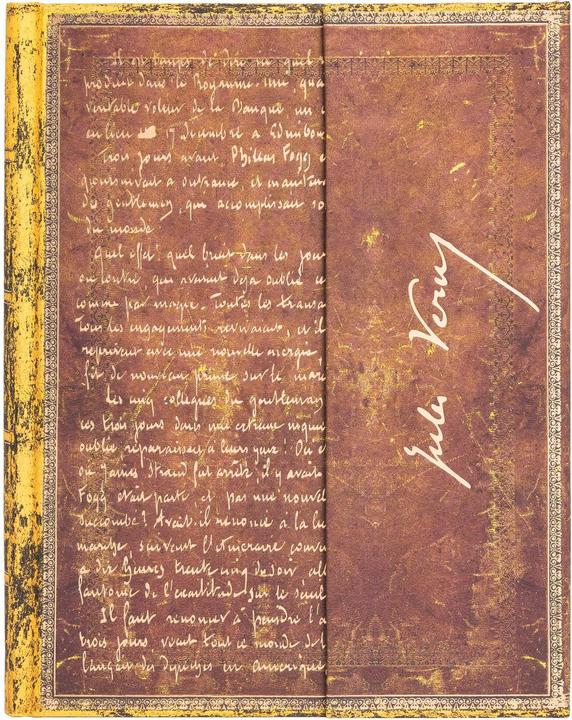 Il est temps de dire ici quel
produit dans le Royaume-Uni, qua
véritable voleur de la Banque un
eu lieu 17 Décembre à Edimbou
Trois jours avant, Phileas Fogg
poursuivait à outrance, et maintena
des gentlemen, que accomplissait so
du monde
Quel effet! quel bruit dans les jour
ou contre, qui avaient déjà oublié ce
comme par magie. Toutes les transa
Tous les engagements revivaient, et il
reprirent avec une nouvelle énergie,
fit de nouveau prime sur le marc
Les cinq collègues du gentleman
ces trois jours dans une extrême inquié
oublié reparaissait à leurs yeux! Où é
où James Strand fut arrêté, il y avait
Fogg était parti et pas une nouvel
succombé? Avait-il renoncé à la lu
marche suivant l'itinéraire conve
à dix heures trente cinq du soir all
fantôme de l'exactitude sur le seuil
Il faut renoncer à peindre l'a
trois jours, vécut tout ce monde de l
lançait des dépêches en Amérique
Jules Verne